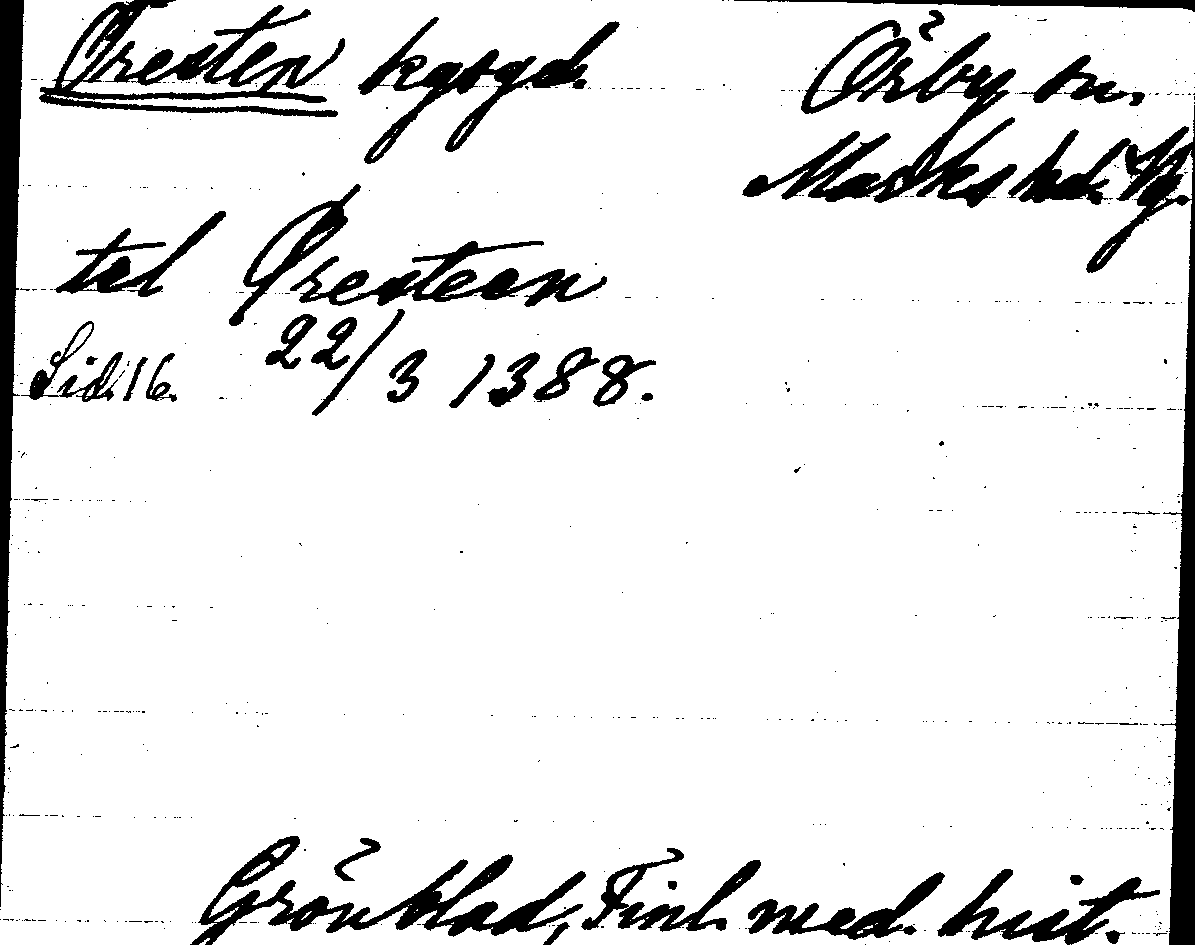 Öresten kgsgd.
Örby sn.
Marks hd. Vg.
tel Øresteen
Sid. 16. 22/3 1388.
Grönblad, Finl. med. hist.